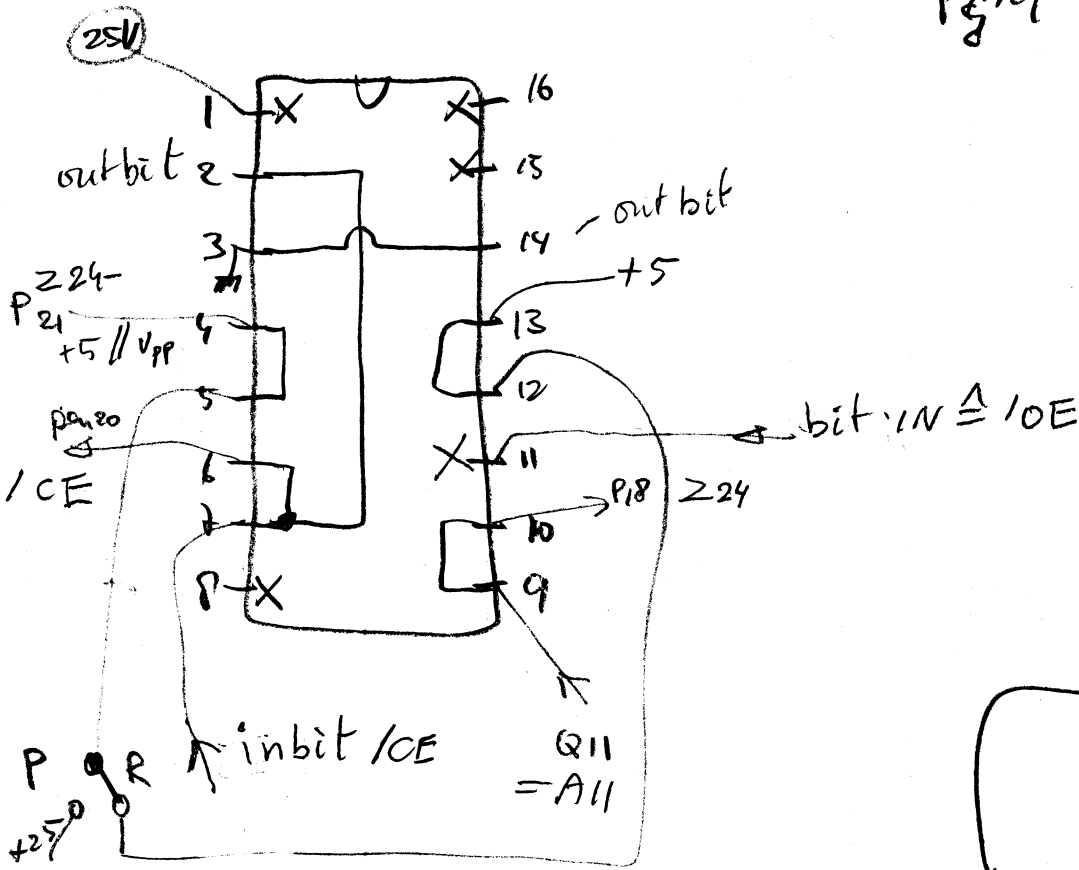 25V
1
16
outbit 2
15
outbit
3
14
Z24-
P21
+5 // Vpp
4
+5
13
5
12
pin 20
/CE
6
11
bit IN ≙ /OE
7
10
P18 Z24
8
9
inbit /CE
Q11
= A11
P R
+25